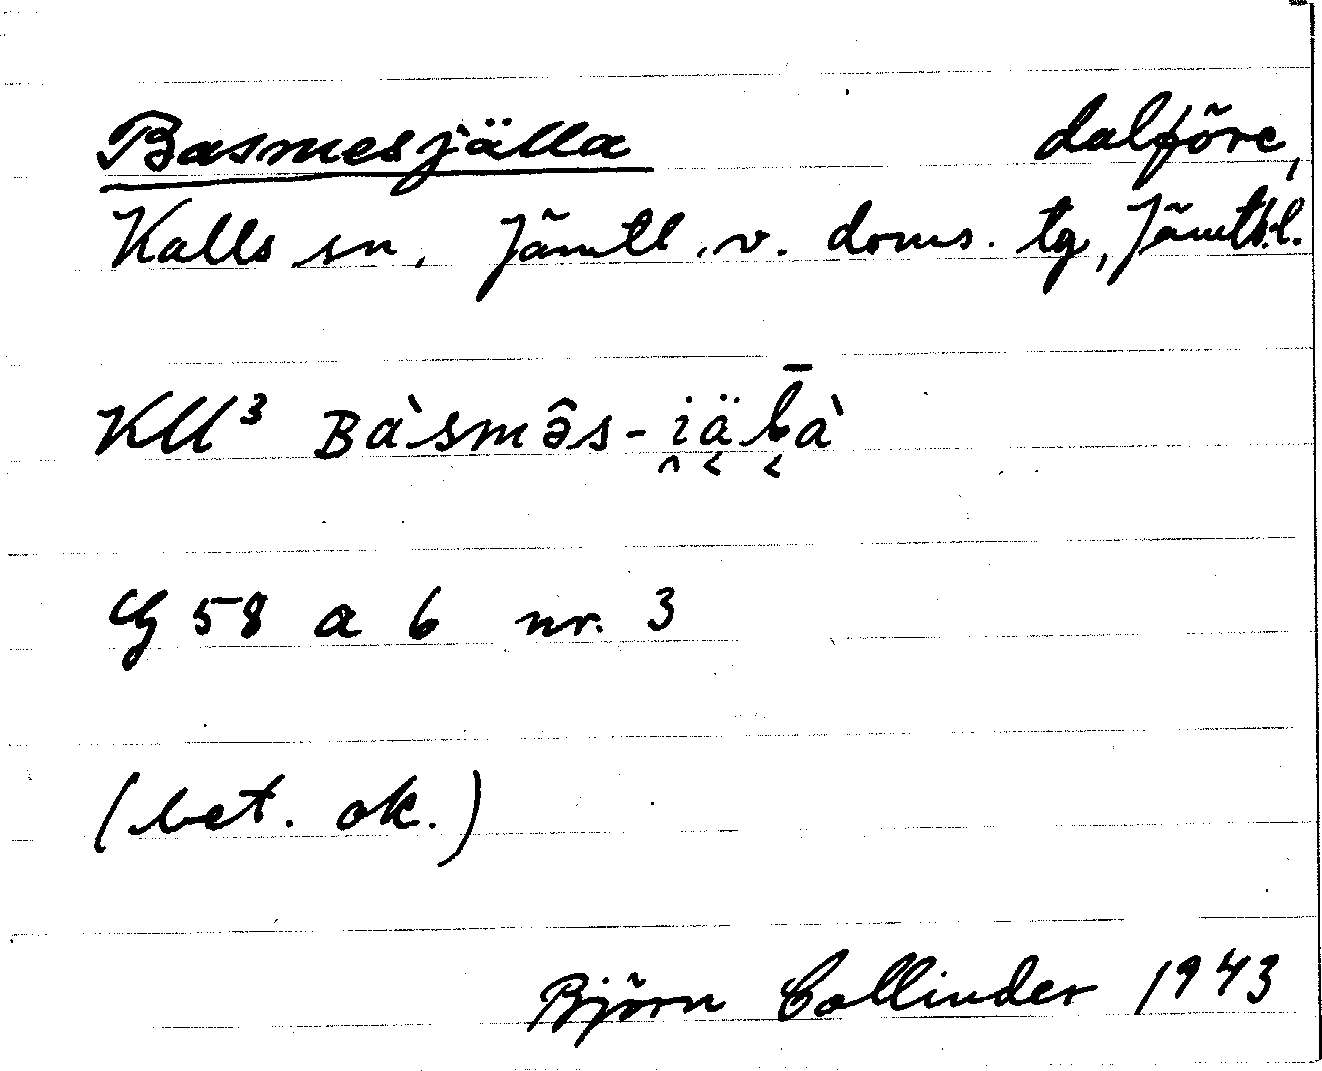 Basmesjälla dalföre,
Kalls sn, Jämtl. v. doms. tg, Jämtl. l.
KU³ Bàsmə̂s-i̯äʟ̄à
G 58 a b nr. 3
(bet. ok.)
Björn Collinder 1943